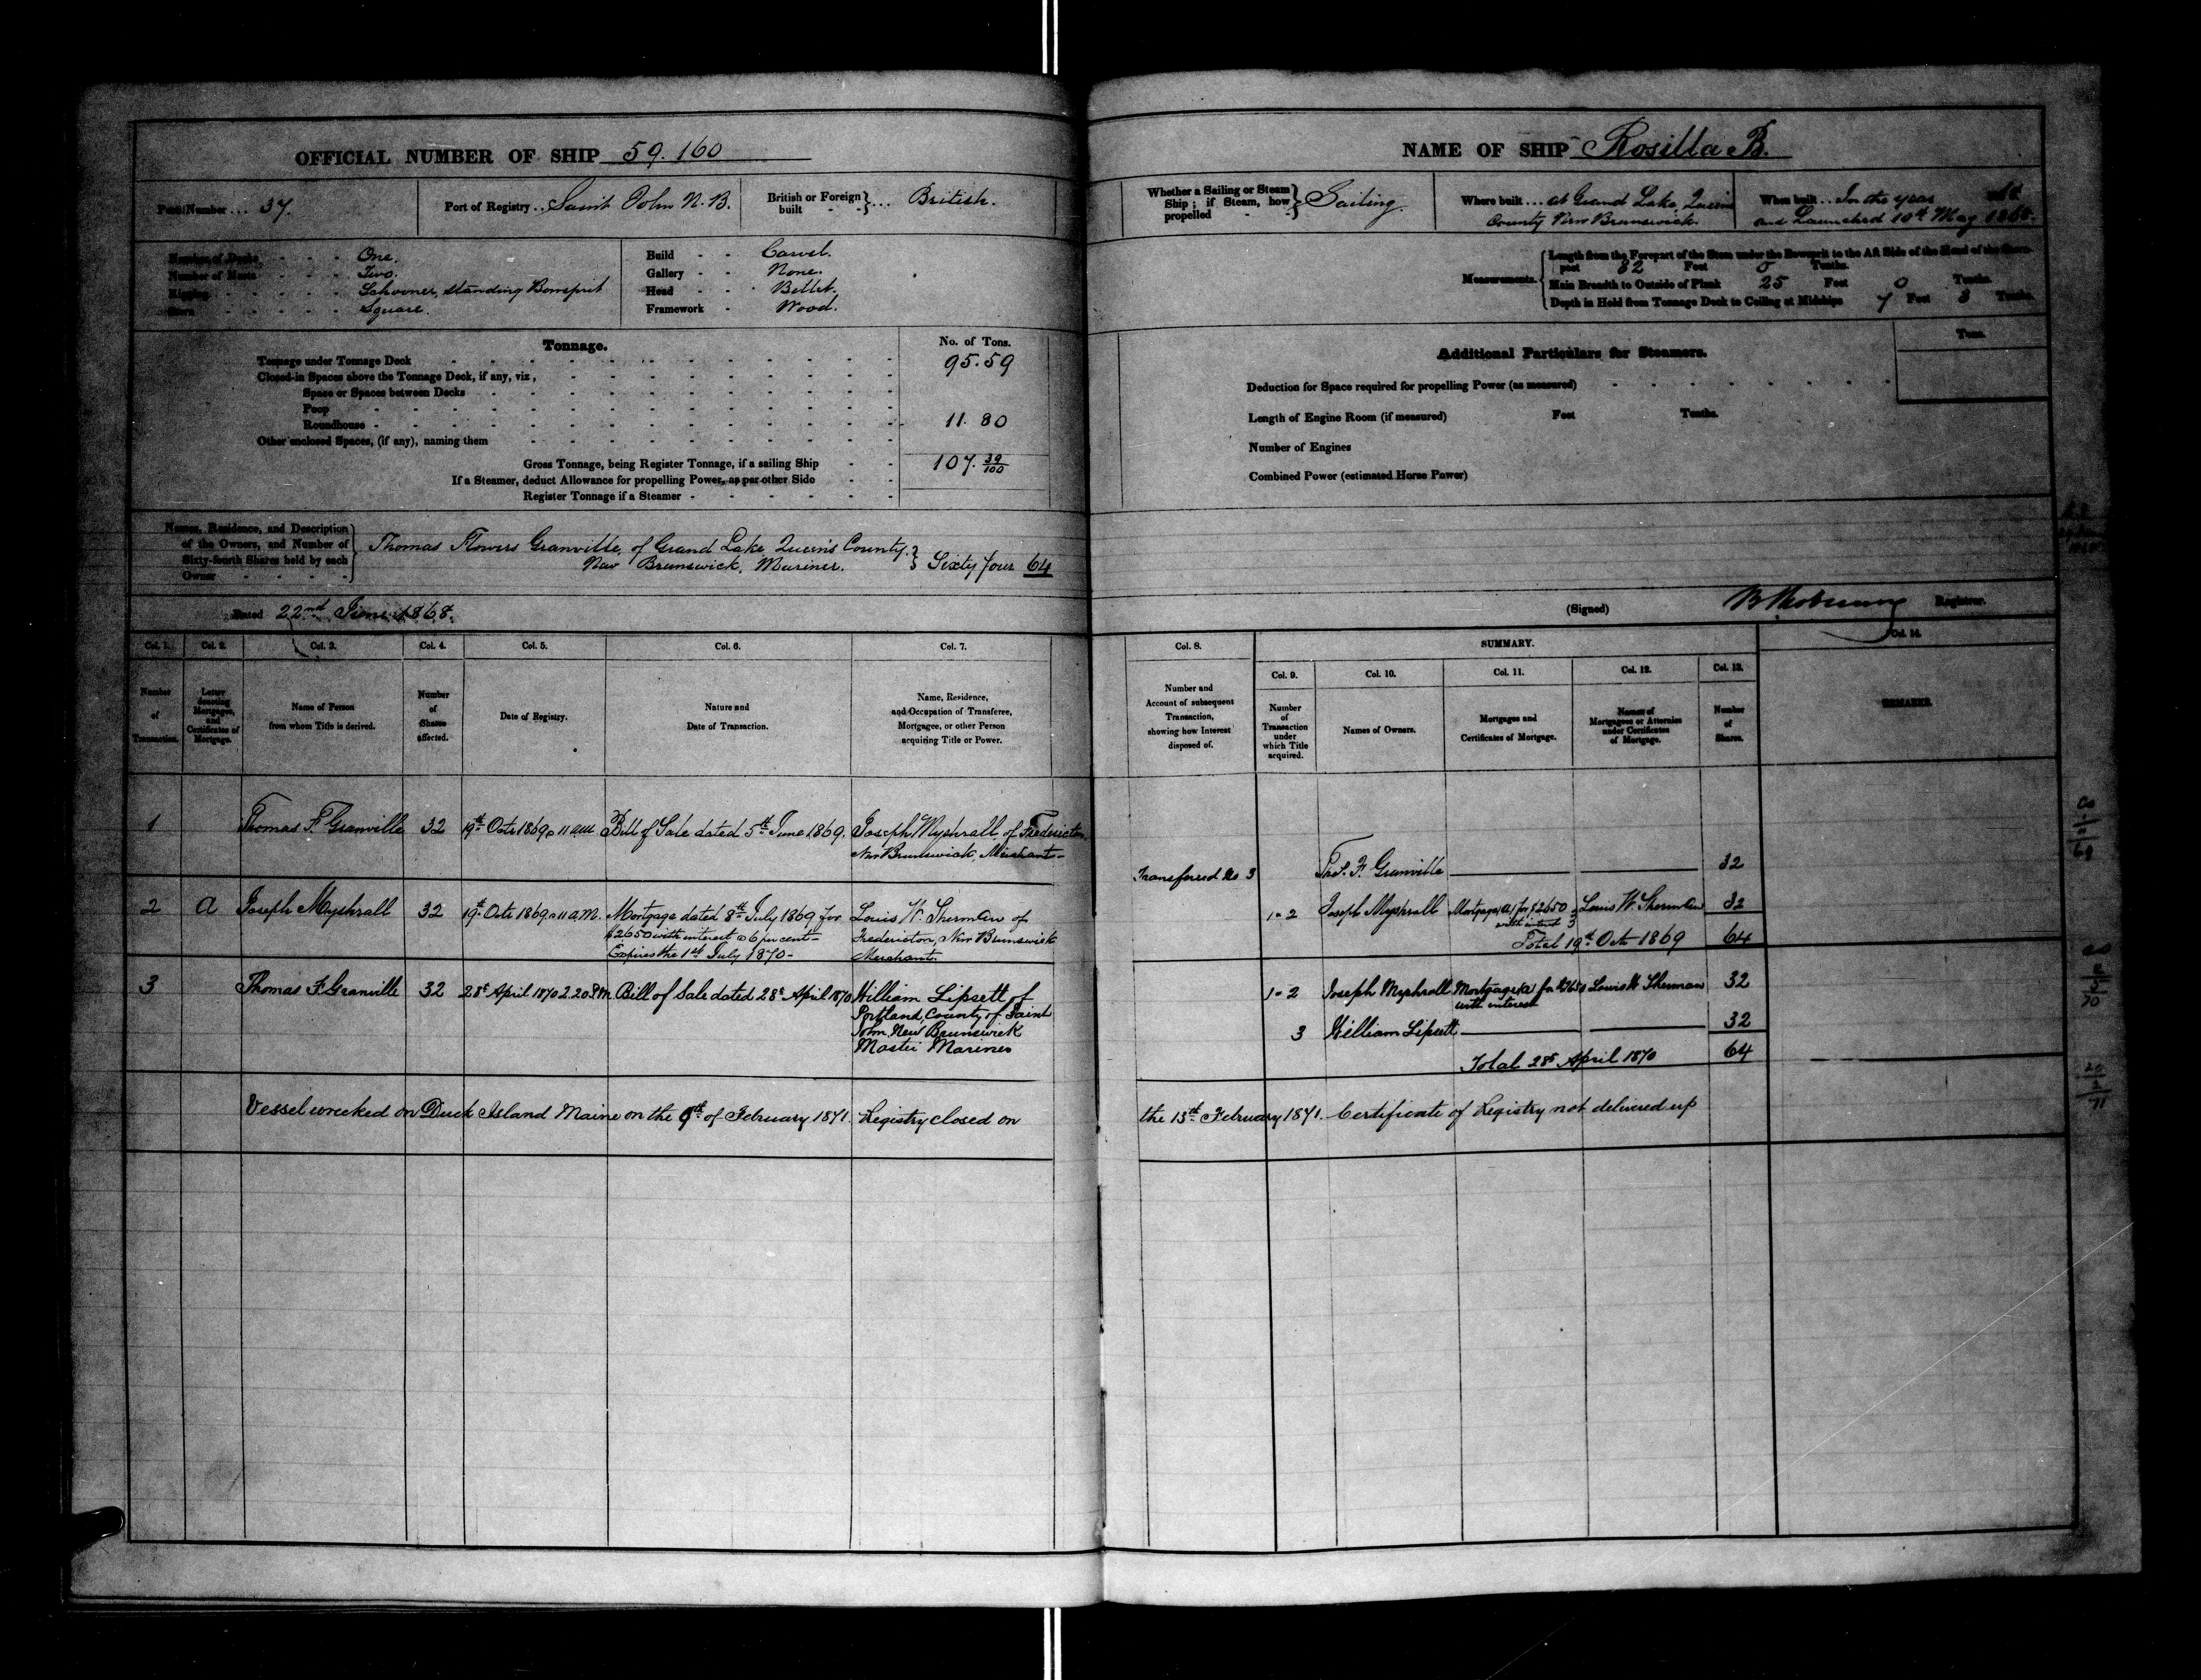 OFFICIAL NUMBER OF SHIP 59.160
Number ... 37.
Port of Registry .. Saint John N.B.
British or Foreign built } ... British.
Number of Decks - - - One.
Number of Masts - - - Two.
Rigging - - - Schooner, standing Bowsprit
Stern - - - Square.
Build - - Carvel.
Gallery - - None.
Head - - Billet.
Framework - Wood.
Tonnage.
No. of Tons.
Tonnage under Tonnage Deck 95.59
Closed-in Spaces above the Tonnage Deck, if any, viz,
Space or Spaces between Decks
Poop
Roundhouse - 11.80
Other enclosed Spaces, (if any), naming them
Gross Tonnage, being Register Tonnage, if a sailing Ship 107.39/100
If a Steamer, deduct Allowance for propelling Power, as per other Side
Register Tonnage if a Steamer -
Names, Residence, and Description of the Owners, and Number of Sixty-fourth Shares held by each Owner
Thomas Flowers Granville, of Grand Lake, Queens County.
New Brunswick, Mariner. } Sixty four 64
Dated 22nd June 1868.
Col. 1. Col. 2. Col. 3. Col. 4. Col. 5. Col. 6. Col. 7.
Number of Transaction.
Letter denoting Mortgages, and Certificates of Mortgage.
Name of Person from whom Title is derived.
Number of Shares affected.
Date of Registry.
Nature and Date of Transaction.
Name, Residence, and Occupation of Transferee, Mortgagee, or other Person acquiring Title or Power.
1 Thomas F. Granville 32 19th Octr 1869 @ 11 am Bill of Sale dated 5th June 1869. Joseph Myshrall of Fredericton
New Brunswick, Merchant -
2 A Joseph Myshrall 32 19th Octr 1869 @ 11 a.m. Mortgage dated 8th July 1869 for Louis W. Sherman of
$2650 with interest @ 6 per cent - Fredericton, New Brunswick
Expires the 1st July 1870 - Merchant.
3 Thomas F Granville 32 28t April 1870 2.20 P.M. Bill of Sale dated 28t April 1870 William Lipsett of
Portland, County of Saint
John, New Brunswick
Master Mariner
Vessel wrecked on Duck Island Maine on the 9th of February 1871. Registry closed on
NAME OF SHIP Rosilla B.
Whether a Sailing or Steam Ship; if Steam, how propelled } Sailing.
Where built ... at Grand Lake, Queens
County New Brunswick.
When built ... In the year
and Launched 10th May 1868.
Measurements.
Length from the Forepart of the Stem under the Bowsprit to the Aft Side of the Head of the Stern-
post 82 Feet 0 Tenths.
Main Breadth to Outside of Plank 25 Feet 0 Tenths.
Depth in Hold from Tonnage Deck to Ceiling at Midships 7 Feet 3 Tenths.
Additional Particulars for Steamers.
Tons.
Deduction for Space required for propelling Power (as measured)
Length of Engine Room (if measured) Feet Tenths.
Number of Engines
Combined Power (estimated Horse Power)
(Signed) Registrar.
Col. 8. SUMMARY. Col. 14.
Col. 9. Col. 10. Col. 11. Col. 12. Col. 13.
Number and Account of subsequent Transaction, showing how Interest disposed of.
Number of Transaction under which Title acquired.
Names of Owners.
Mortgages and Certificates of Mortgage.
Names of Mortgagees or Attornies under Certificates of Mortgage.
Number of Shares.
REMARKS.
Transferred No 3 Thos. F. Granville 32
1-2 Joseph Myshrall Mortgage (A) for $2650 Louis W. Sherman 32
with interest
Total 19th Octr 1869 64
1-2 Joseph Myshrall Mortgage (A) for $2650 Louis W Sherman 32
with interest
3 William Lipsett 32
Total 28t April 1870 64
the 13th February 1871. Certificate of Registry not delivered up